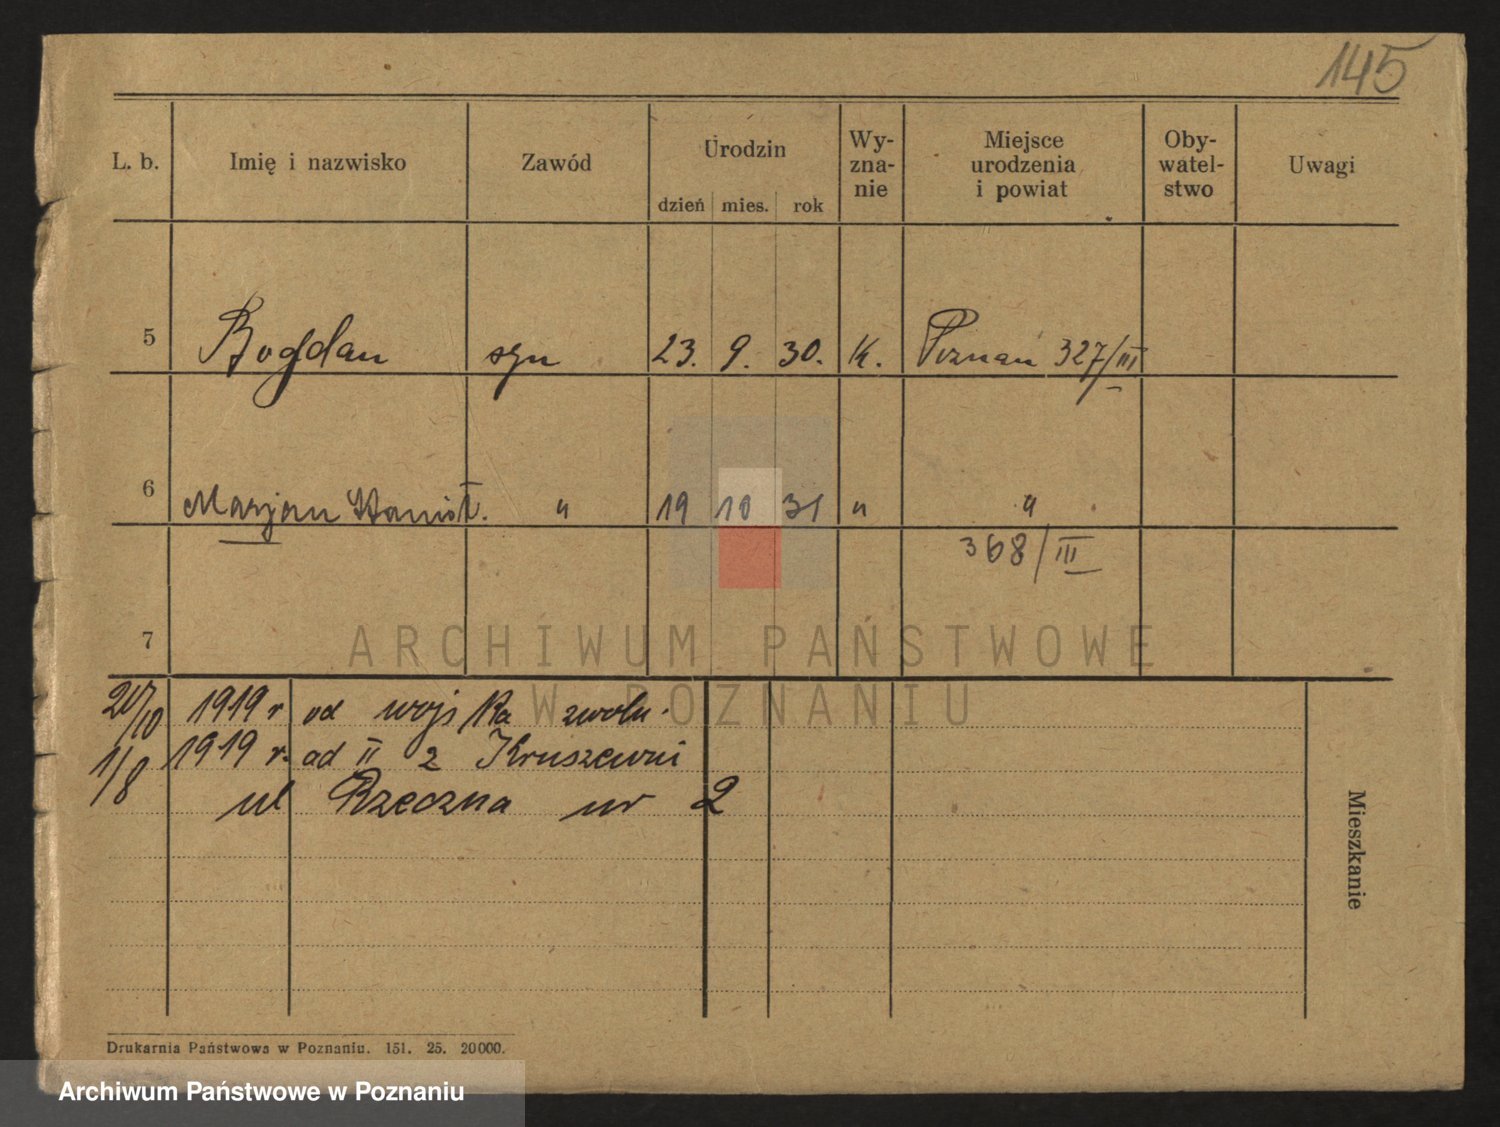 145
L. b. Imię i nazwisko Zawód Urodzin Wy-zna-nie Miejsce urodzenia i powiat Oby-watel-stwo Uwagi
dzień mies. rok
5 Bogdan syn 23. 9. 30. K. Poznań 327/III
6 Marjan Stanisł. " 19 10 31 " "
368/III
7
ARCHIWUM PAŃSTWOWE
W POZNANIU
20/10 1919 r od wojska zwoln.
1/8 1919 r. od II z Kruszewni
ul Rzeczna nr 2
Mieszkanie
Drukarnia Państwowa w Poznaniu. 151. 25. 20000.
Archiwum Państwowe w Poznaniu